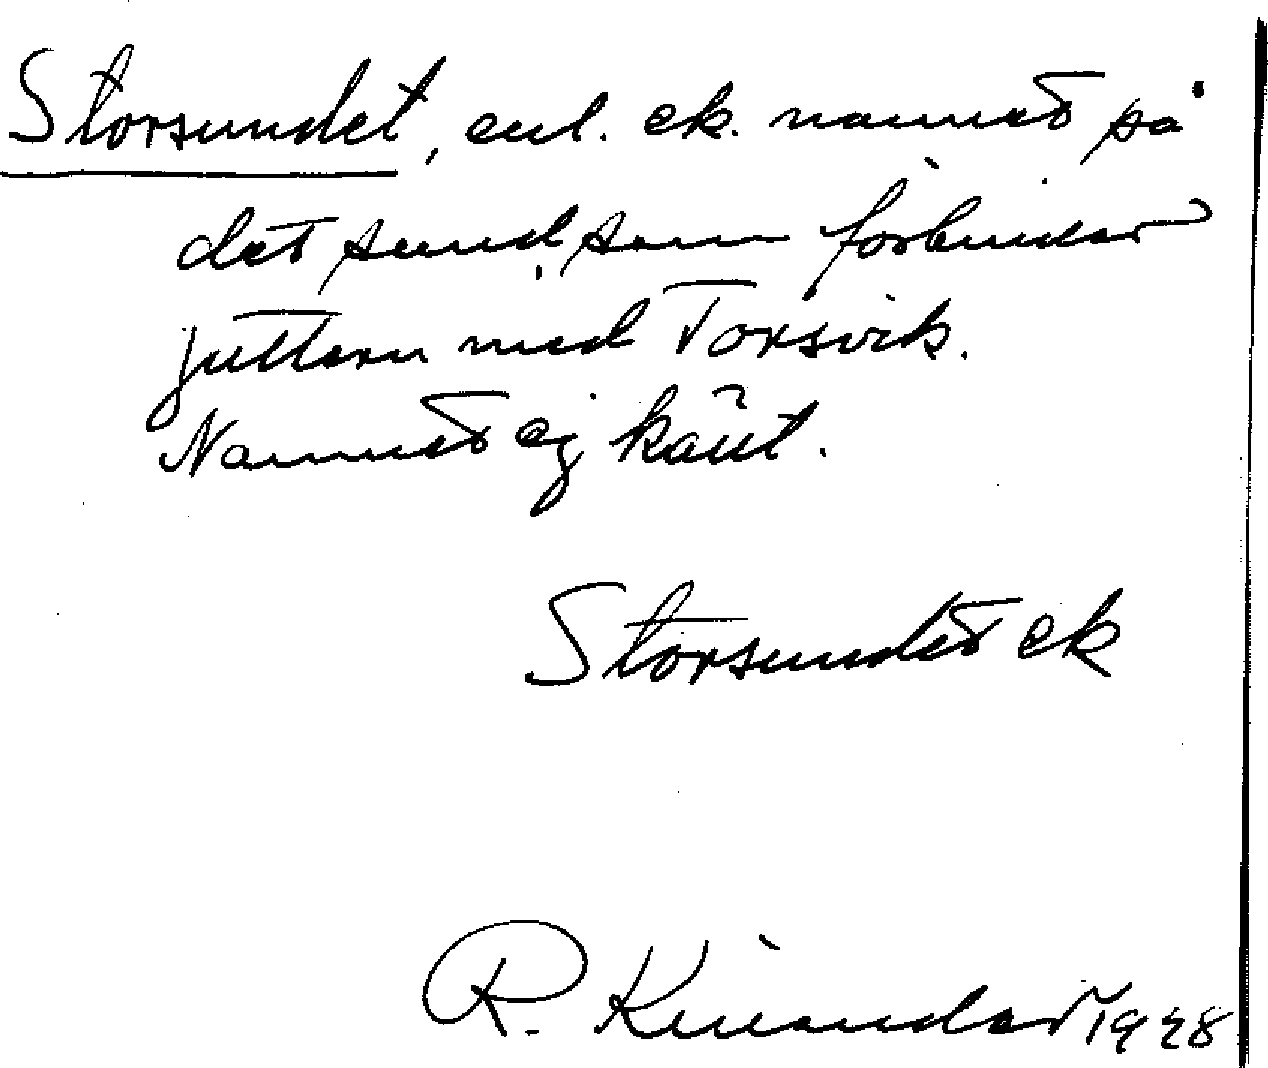 Storsundet, enl. ek. namnet på
det sund, som förbinder
Juttern med Torsvik.
Namnet ej känt.
Storsundet ek
R. Kinander 1928